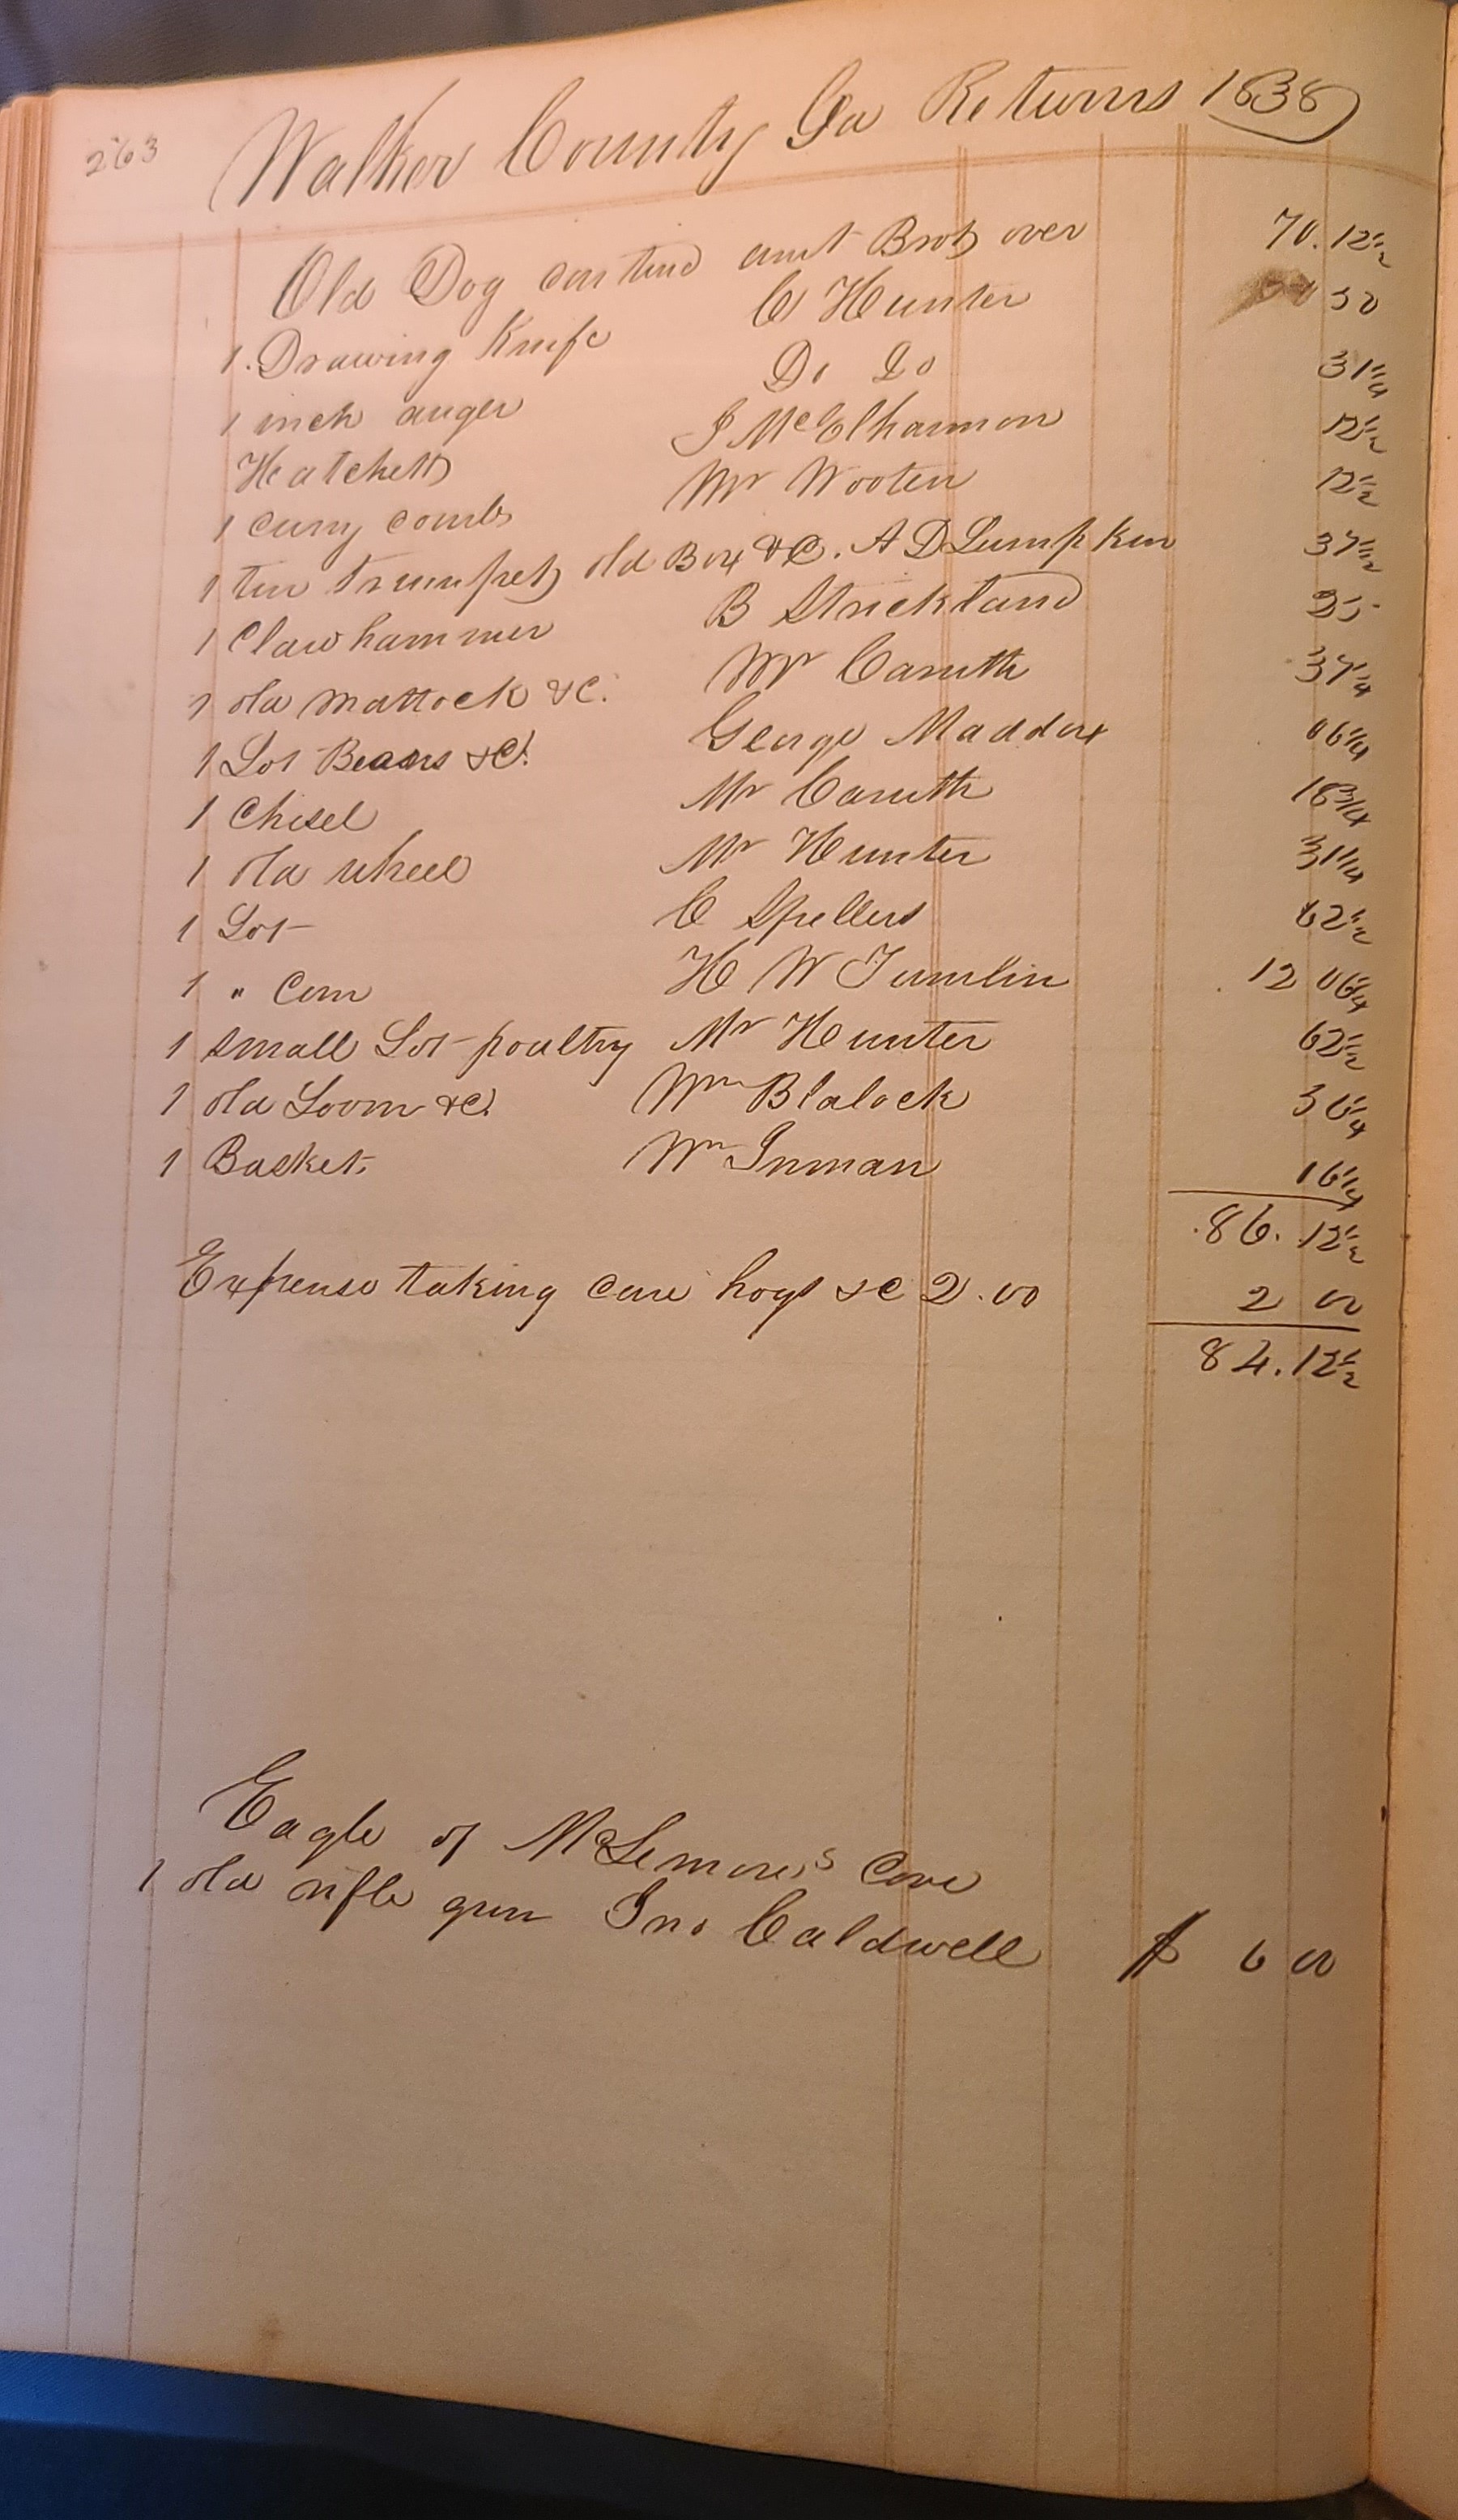 263 Walker County Ga Returns 1838
Old Dog contind amt Brot over 70. 12 1/2
1. Drawing Knife C Hunter 50
1 inch auger Do Do 31 1/4
Hatchett J McElhannon 12 1/2
1 curry comb Mr Wooten 12 1/2
1 tin trumpet old Box &C. A D Lumpkin 37 1/2
1 Claw hammer B Strickland 25
1 old mattock &C. Mr Caruth 37 1/4
1 Lot Beans &C. George Maddox 06 1/4
1 Chisel Mr Caruth 18 3/4
1 old wheel Mr Hunter 31 1/4
1 Lot C Spellers 62 1/2
1 " Corn H W Tumlin 12 06 1/4
1 small Lot poultry Mr Hunter 62 1/2
1 old Loom &C. Wm Blalock 36 1/4
1 Basket Wm Inman 16 1/4
86. 12 1/2
Expense taking care hogs &c 2.00 2 00
84. 12 1/2
Eagle of McLemore's Cove
1 old rifle gun Jno Caldwell $ 6 00